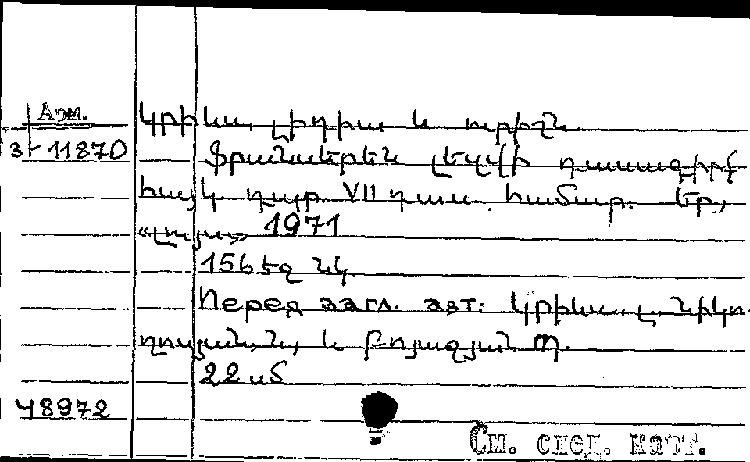 Арм.
3-11870
Կրինա, Լիդիա և ուրիշն.
Ֆրանսերեն լեզվի դասագիրք
հայկ դպր. VII դաս. համար. Եր.,
«Լույս» 1971
156 էջ նկ.
Перед загл. авт: Կրինա, Լ., Նիկո-
ղոսյան, Ն, և Բոյաջյան Մ.
22 սմ
48972
См. след. карт.